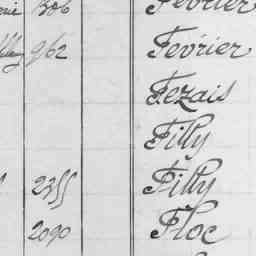 306 Février
962 Février
Fezais
Filly
2355 Filly
2090 Floc